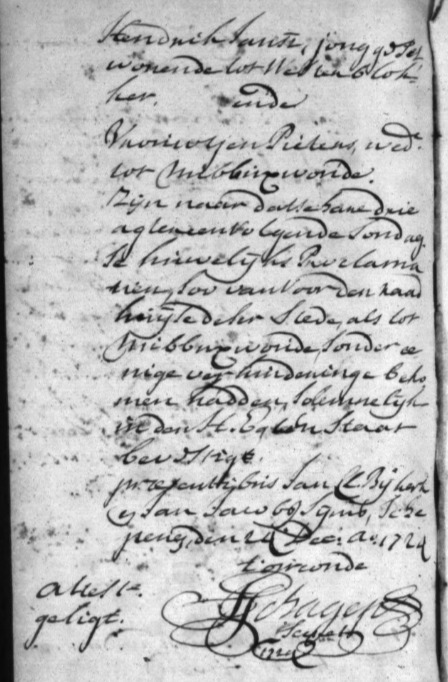 Hendrik Jansz, jong gesel
wonende tot Wester Blok-
ker. ende
Pieters, wede.
tot Nibbixwoude.
Zijn naar dat se hare drie
agtereenvolgende Sondag
se huwelijks Proclama
tien, soo van voor den raad
huijse deser Stede, als tot
Nibbixwoude, sonder ee
nige verhinderinge beko
men hadden, solemnelijk
in den H. Egten Staat
bevestigt
præsentibus Jan Bijkerk
en Jan Jacobsz, Sche
penen, den 24 Decr. Ao. 1724
t'oirconde
attestie.
geligt.
Schagen
Secrets
1724